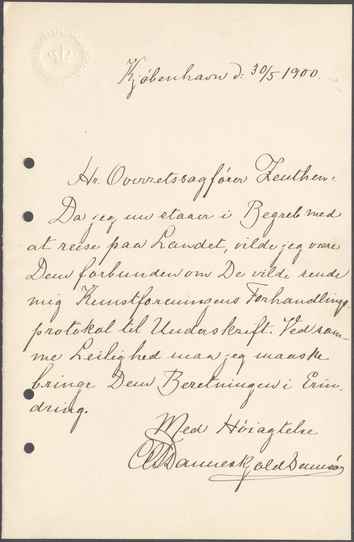 Kjøbenhavn d: 30/5 1900.
Hr. Overretssagfører Zeuthen.
Da jeg nu staaer i Begreb med
at reise paa Landet, vilde jeg være
Dem forbunden om De vilde sende
mig Kunstforeningens Forhandlings
protokol til Underskrift. Ved sam-
me Leilighed maa jeg maaske
bringe Dem Beretningen i Erin-
dring.
Med Høiagtelse
Danneskjold Samsøe